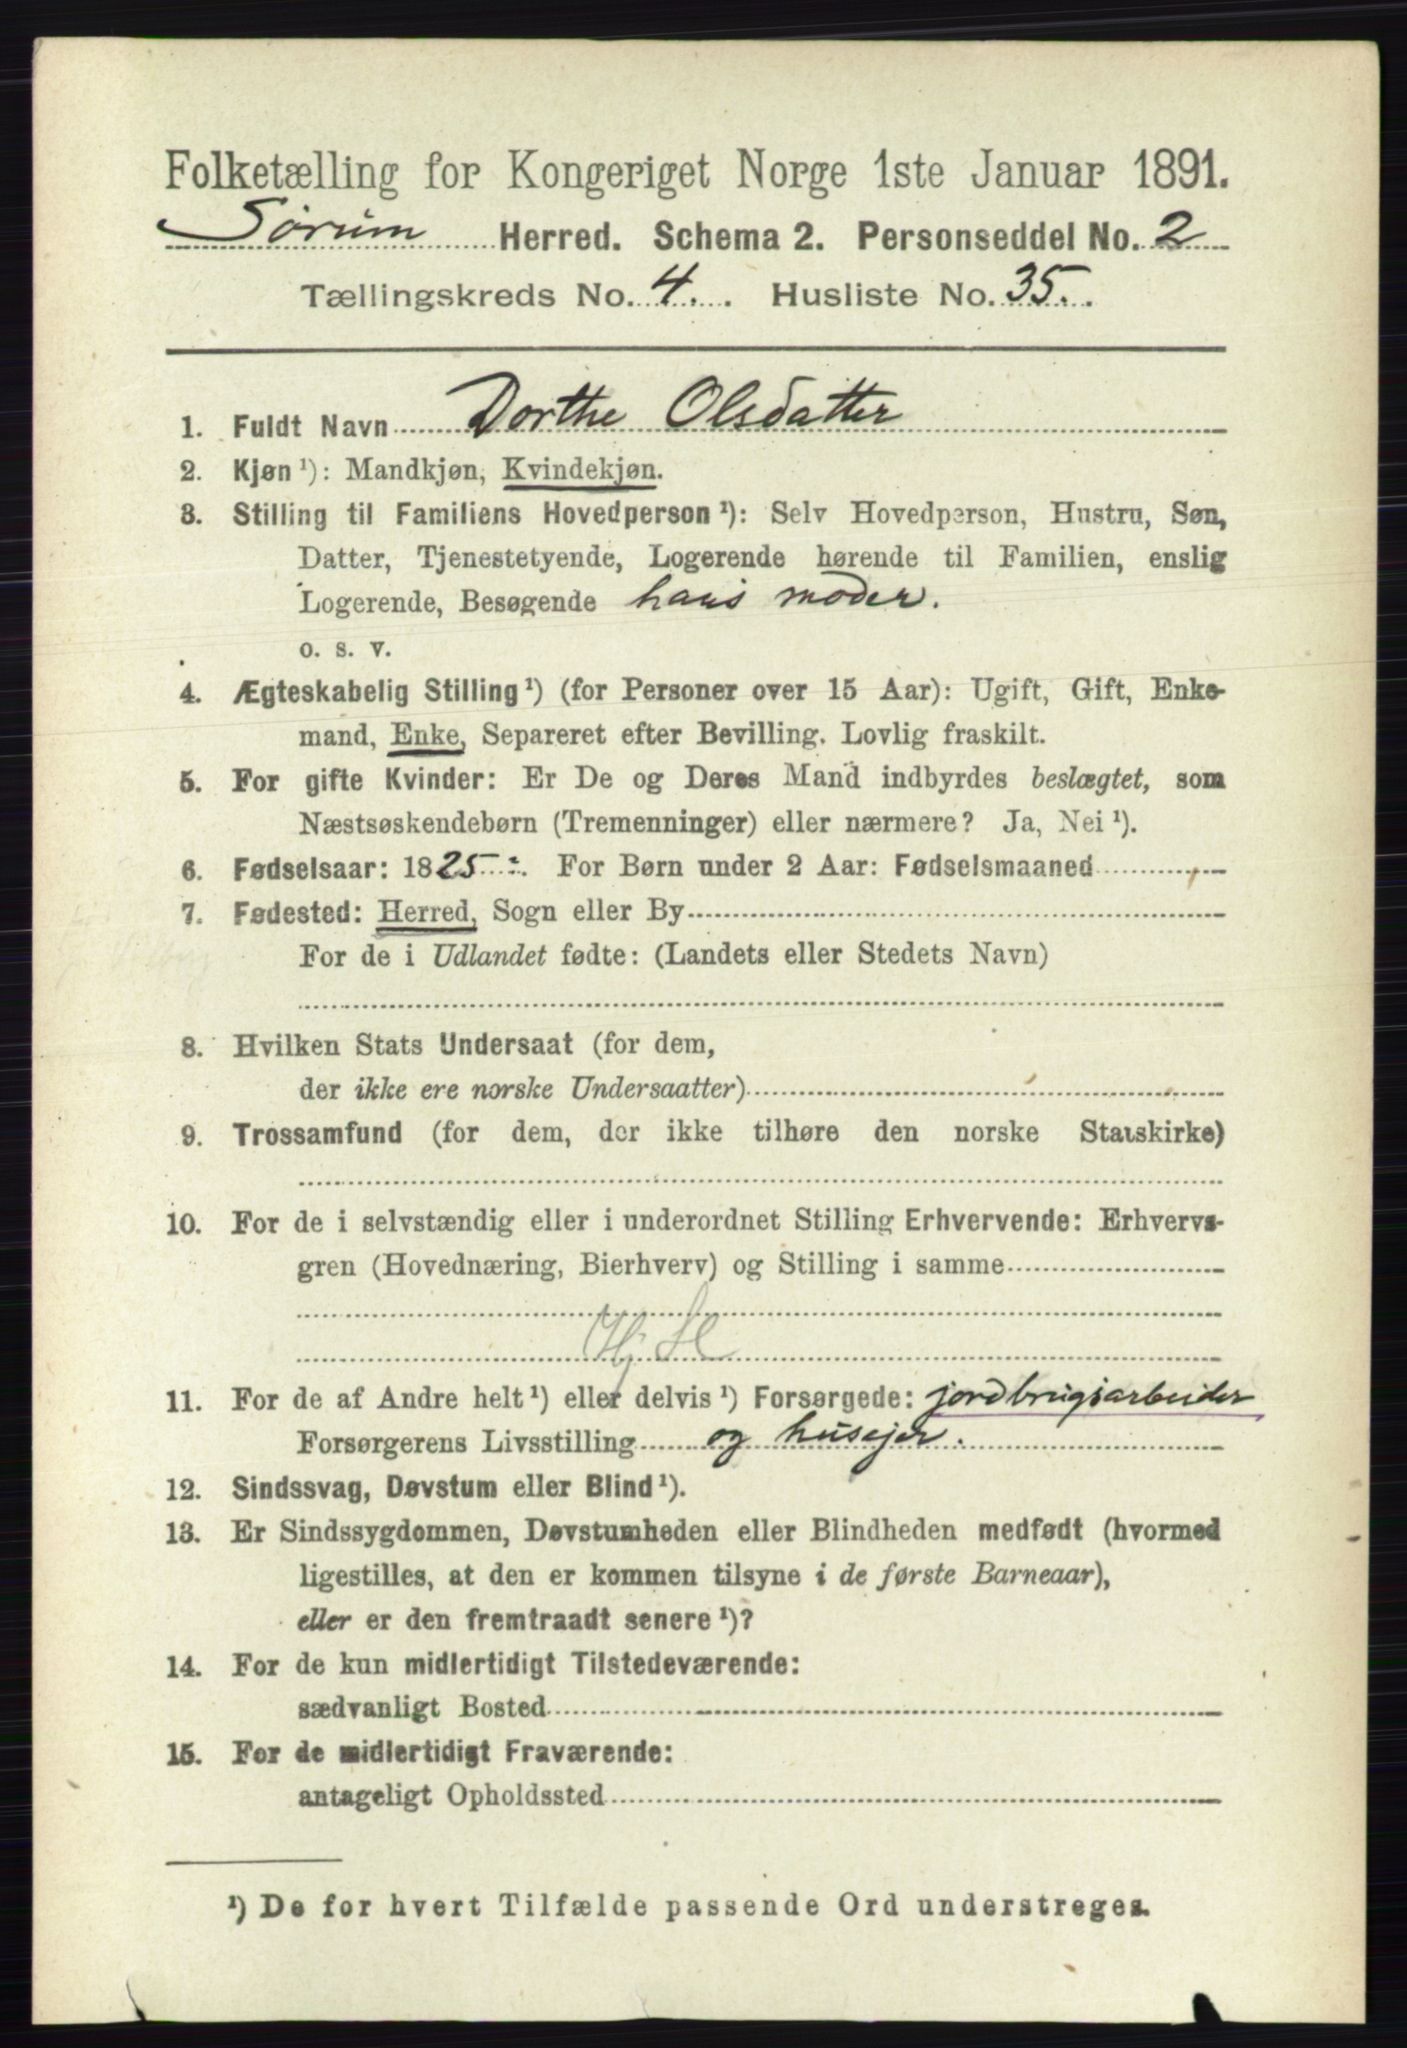 Folketælling for Kongeriget Norge 1ste Januar 1891.
Sørum Herred. Schema 2. Personseddel No. 2
Tællingskreds No. 4. Husliste No. 35.
1. Fuldt Navn Dorthe Olsdatter
2. Kjøn ¹): Mandkjøn, Kvindekjøn.
3. Stilling til Familiens Hovedperson ¹): Selv Hovedperson, Hustru, Søn,
Datter, Tjenestetyende, Logerende hørende til Familien, enslig
Logerende, Besøgende hans moder.
o. s. v.
4. Ægteskabelig Stilling ¹) (for Personer over 15 Aar): Ugift, Gift, Enke-
mand, Enke, Separeret efter Bevilling. Lovlig fraskilt.
5. For gifte Kvinder: Er De og Deres Mand indbyrdes beslægtet, som
Næstsøskendebørn (Tremenninger) eller nærmere? Ja, Nei ¹).
6. Fødselsaar: 1825. For Børn under 2 Aar: Fødselsmaaned
7. Fødested: Herred, Sogn eller By
For de i Udlandet fødte: (Landets eller Stedets Navn)
8. Hvilken Stats Undersaat (for dem,
der ikke ere norske Undersaatter)
9. Trossamfund (for dem, der ikke tilhøre den norske Statskirke)
10. For de i selvstændig eller i underordnet Stilling Erhvervende: Erhvervs-
gren (Hovednæring, Bierhverv) og Stilling i samme
11. For de af Andre helt ¹) eller delvis ¹) Forsørgede: jordbrugsarbeider
Forsørgerens Livsstilling og husejer.
12. Sindssvag, Døvstum eller Blind ¹).
13. Er Sindssygdommen, Døvstumheden eller Blindheden medfødt (hvormed
ligestilles, at den er kommen tilsyne i de første Barneaar),
eller er den fremtraadt senere ¹)?
14. For de kun midlertidigt Tilstedeværende:
sædvanligt Bosted
15. For de midlertidigt Fraværende:
antageligt Opholdssted
¹) De for hvert Tilfælde passende Ord understreges.